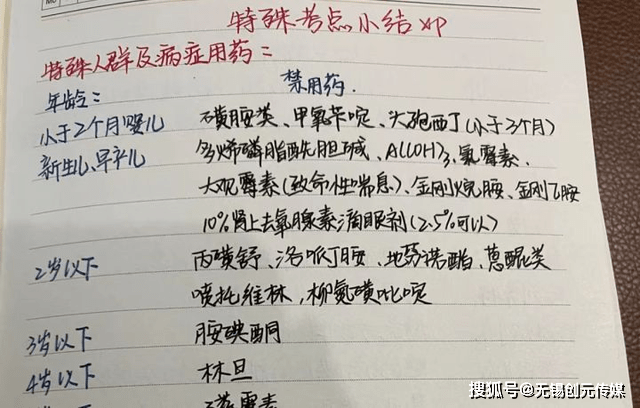 特殊考点小结xp
特殊人群及病症用药：
年龄： 禁用药.
小于2个月婴儿 磺胺类、甲氧苄啶、头孢西丁(小于3个月)
新生儿、早产儿 多烯磷脂酰胆碱、Al(OH)3、氯霉素.
大观霉素(致命性喘息)、金刚烷胺、金刚乙胺
10%肾上去氧腺素滴眼剂(2.5%可以)
2岁以下 丙磺舒、洛哌丁胺、地芬诺酯、蒽醌类
喷托维林，柳氮磺吡啶
3岁以下 胺碘酮
4岁以下 林旦
霉素
搜狐号@无锡创元传媒